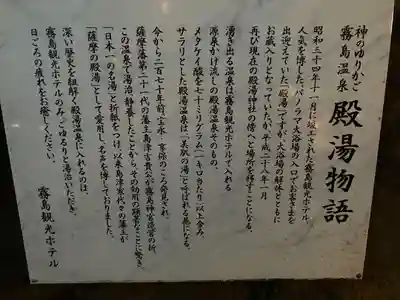 神のゆりかご
霧島温泉 殿湯物語
昭和三十四年十一月に竣工された霧島観光ホテル。
人気を博したパノラマ大浴場の入口でお客さまを
出迎えていた「殿湯」ですが、大浴場の解体とともに
お蔵入りとなっていたが、平成二十八年一月
再び現在の殿湯神社の傍へと場所を移すことになる。
湧き出る温泉は霧島観光ホテルで入れる
源泉かけ流しの殿湯温泉そのもの。
メタケイ酸を七十ミリグラム(一キロ当たり)以上含み、
サラリとした殿湯温泉は「美肌の湯」と呼ばれる農になる。
今から二百七十年前、宝永・享保のころ発見され、
薩摩藩第二十一代の藩主島津吉貴公が霧島神宮造営の折、
この温泉で湯治静養したことから、その効用の顕著なことに驚き
「日本一の名湯」と折紙をつけ、以来島津家代々の藩主が
「薩摩の殿湯」として愛用し、名声を博しておりました。
深い歴史を紐解く殿湯温泉に入れるのは、
霧島観光ホテルのみ。ごゆるりと湯治いただき、
日ごろの疲れをお癒しください。
霧島観光ホテル